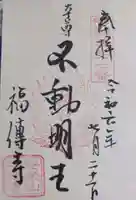 奉拝
令和六年
七月二十一日
本尊
不動明王
福傳寺